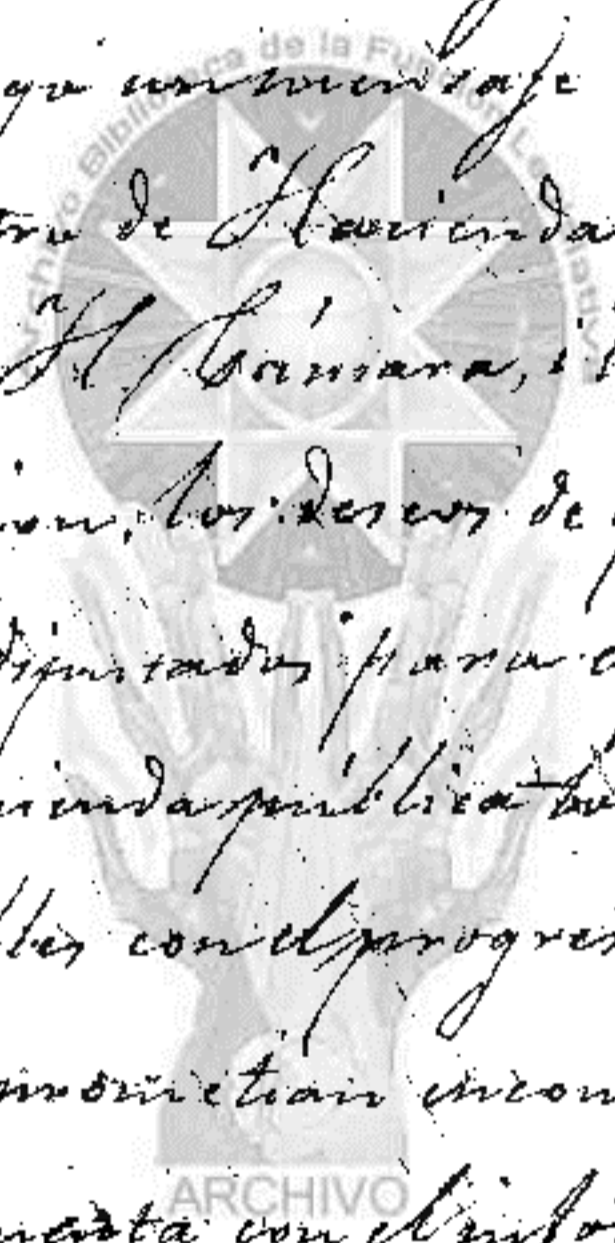 que un mensaje
tro de Hacienda
H. Cámara, i
ion, los deseos de
diputados para
cienda pública
bles con el progres
prometian encon
cuenta con el info
Archivo Biblioteca de la Función Legislativa
ARCHIVO